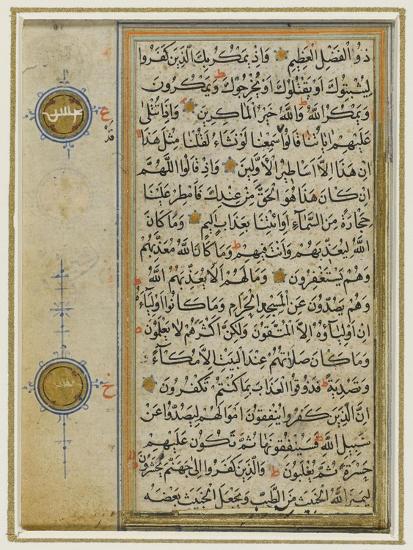 ذُو الْفَضْلِ الْعَظِيمِ وَإِذْ يَمْكُرُ بِكَ الَّذِينَ كَفَرُوا
لِيُثْبِتُوكَ أَوْ يَقْتُلُوكَ أَوْ يُخْرِجُوكَ وَيَمْكُرُونَ
وَيَمْكُرُ اللَّهُ وَاللَّهُ خَيْرُ الْمَاكِرِينَ وَإِذَا تُتْلَى
عَلَيْهِمْ آيَاتُنَا قَالُوا سَمِعْنَا لَوْ نَشَاءُ لَقُلْنَا مِثْلَ هَذَا
إِنْ هَذَا إِلَّا أَسَاطِيرُ الْأَوَّلِينَ وَإِذْ قَالُوا اللَّهُمَّ
إِنْ كَانَ هَذَا هُوَ الْحَقَّ مِنْ عِنْدِكَ فَأَمْطِرْ عَلَيْنَا
حِجَارَةً مِنَ السَّمَاءِ أَوِ ائْتِنَا بِعَذَابٍ أَلِيمٍ وَمَا كَانَ
اللَّهُ لِيُعَذِّبَهُمْ وَأَنْتَ فِيهِمْ وَمَا كَانَ اللَّهُ مُعَذِّبَهُمْ
وَهُمْ يَسْتَغْفِرُونَ وَمَا لَهُمْ أَلَّا يُعَذِّبَهُمُ اللَّهُ
وَهُمْ يَصُدُّونَ عَنِ الْمَسْجِدِ الْحَرَامِ وَمَا كَانُوا أَوْلِيَاءَهُ
إِنْ أَوْلِيَاؤُهُ إِلَّا الْمُتَّقُونَ وَلَكِنَّ أَكْثَرَهُمْ لَا يَعْلَمُونَ
وَمَا كَانَ صَلَاتُهُمْ عِنْدَ الْبَيْتِ إِلَّا مُكَاءً
وَتَصْدِيَةً فَذُوقُوا الْعَذَابَ بِمَا كُنْتُمْ تَكْفُرُونَ
إِنَّ الَّذِينَ كَفَرُوا يُنْفِقُونَ أَمْوَالَهُمْ لِيَصُدُّوا عَنْ
سَبِيلِ اللَّهِ فَسَيُنْفِقُونَهَا ثُمَّ تَكُونُ عَلَيْهِمْ
حَسْرَةً ثُمَّ يُغْلَبُونَ وَالَّذِينَ كَفَرُوا إِلَى جَهَنَّمَ يُحْشَرُونَ
لِيَمِيزَ اللَّهُ الْخَبِيثَ مِنَ الطَّيِّبِ وَيَجْعَلَ الْخَبِيثَ بَعْضَهُ
ع
قد
خ